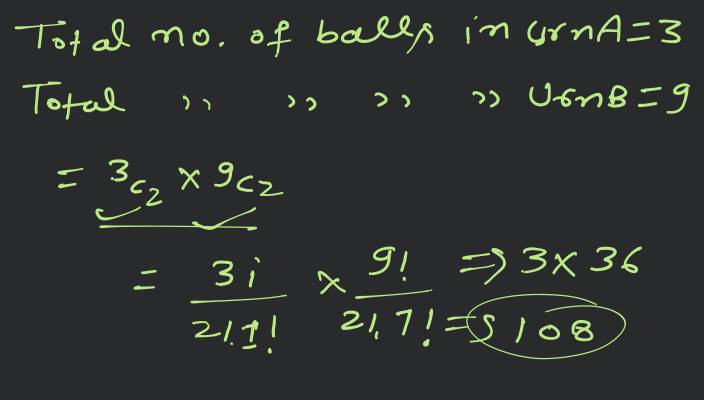 Total no. of balls in urnA=3
Total ,, ,, ,, ,, UrnB=9
= 3c2 × 9c2
= 3! / 2!.1! × 9! / 2!,7! => 3×36
=> 108